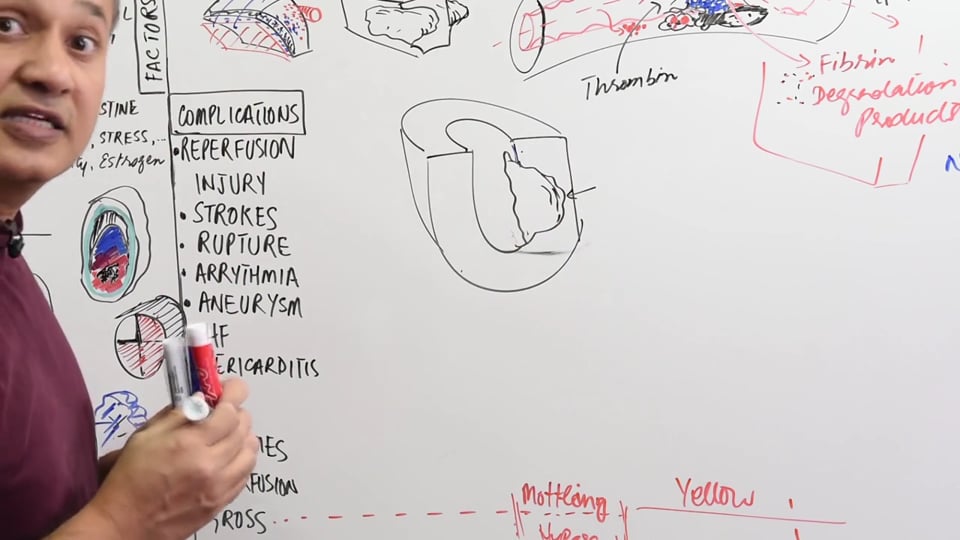 FACTORS
STINE
, STRESS,..
ty, Estrogen
COMPLICATIONS
• REPERFUSION
INJURY
• STROKES
• RUPTURE
• ARRYTHMIA
• ANEURYSM
HF
ERICARDITIS
ES
FUSION
GROSS
Thrombin
Fibrin
Degradation
Products
Mottling
Yellow